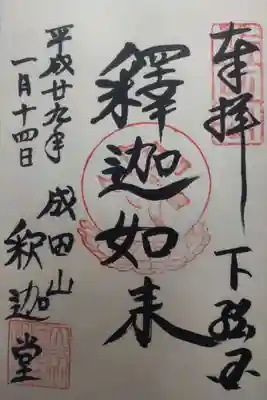 奉拝
下総国
釋迦如来
成田山
釈迦堂
平成廿九年
一月十四日